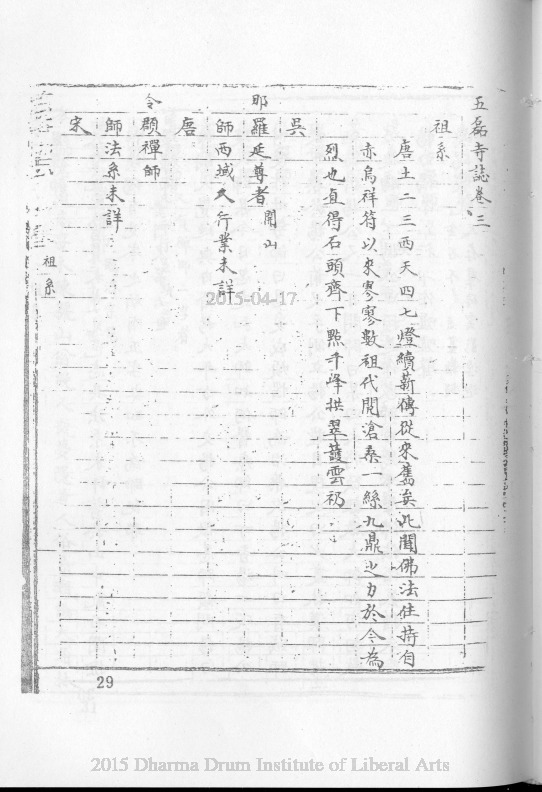 五磊寺誌卷三
祖系
唐土二三西天四七燈續薪傳從來舊矣此間佛法住持自
赤烏祥符以來寥寥數祖代閱滄桑一絲九鼎之力於今為
烈也直得石頭齊下點千峰拱翠護雲礽
吳
那羅延尊者 開山
師西域人行業未詳
唐
令頵禪師
師法系未詳
宋
祖系
29
2015-04-17
2015 Dharma Drum Institute of Liberal Arts